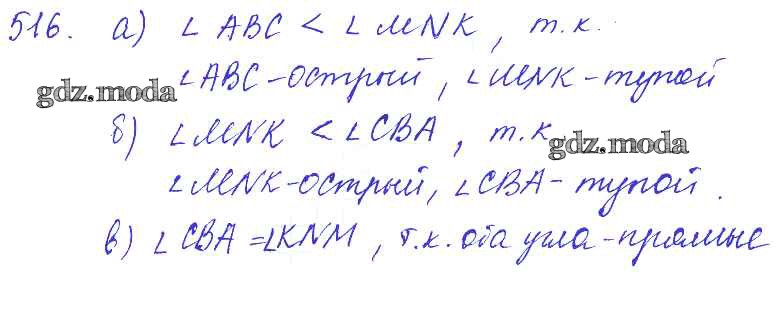 516. а) ∠ ABC < ∠ MNK, т.к.
∠ABC-острый, ∠MNK-тупой
gdz.moda
б) ∠MNK < ∠CBA, т.к
gdz.moda
∠MNK-острый, ∠CBA-тупой.
в) ∠CBA = ∠KNM, т.к. оба угла-прямые